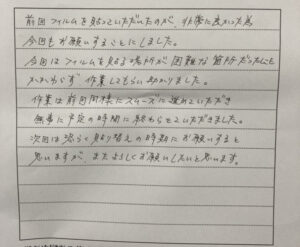 前回フィルムを貼っていただいたのが、非常に良かった為
今回もお願いすることにしました。
今回はフィルムを貼る場所が困難な箇所だったにも
かかわらず 作業してもらい助かりました。
作業は前回同様にスムーズに進めていただき
無事に予定の時間に終わらせていただきました。
次回は恐らく貼り替えの時期にお願いすると
思いますが、またよろしくお願いしたいと思います。